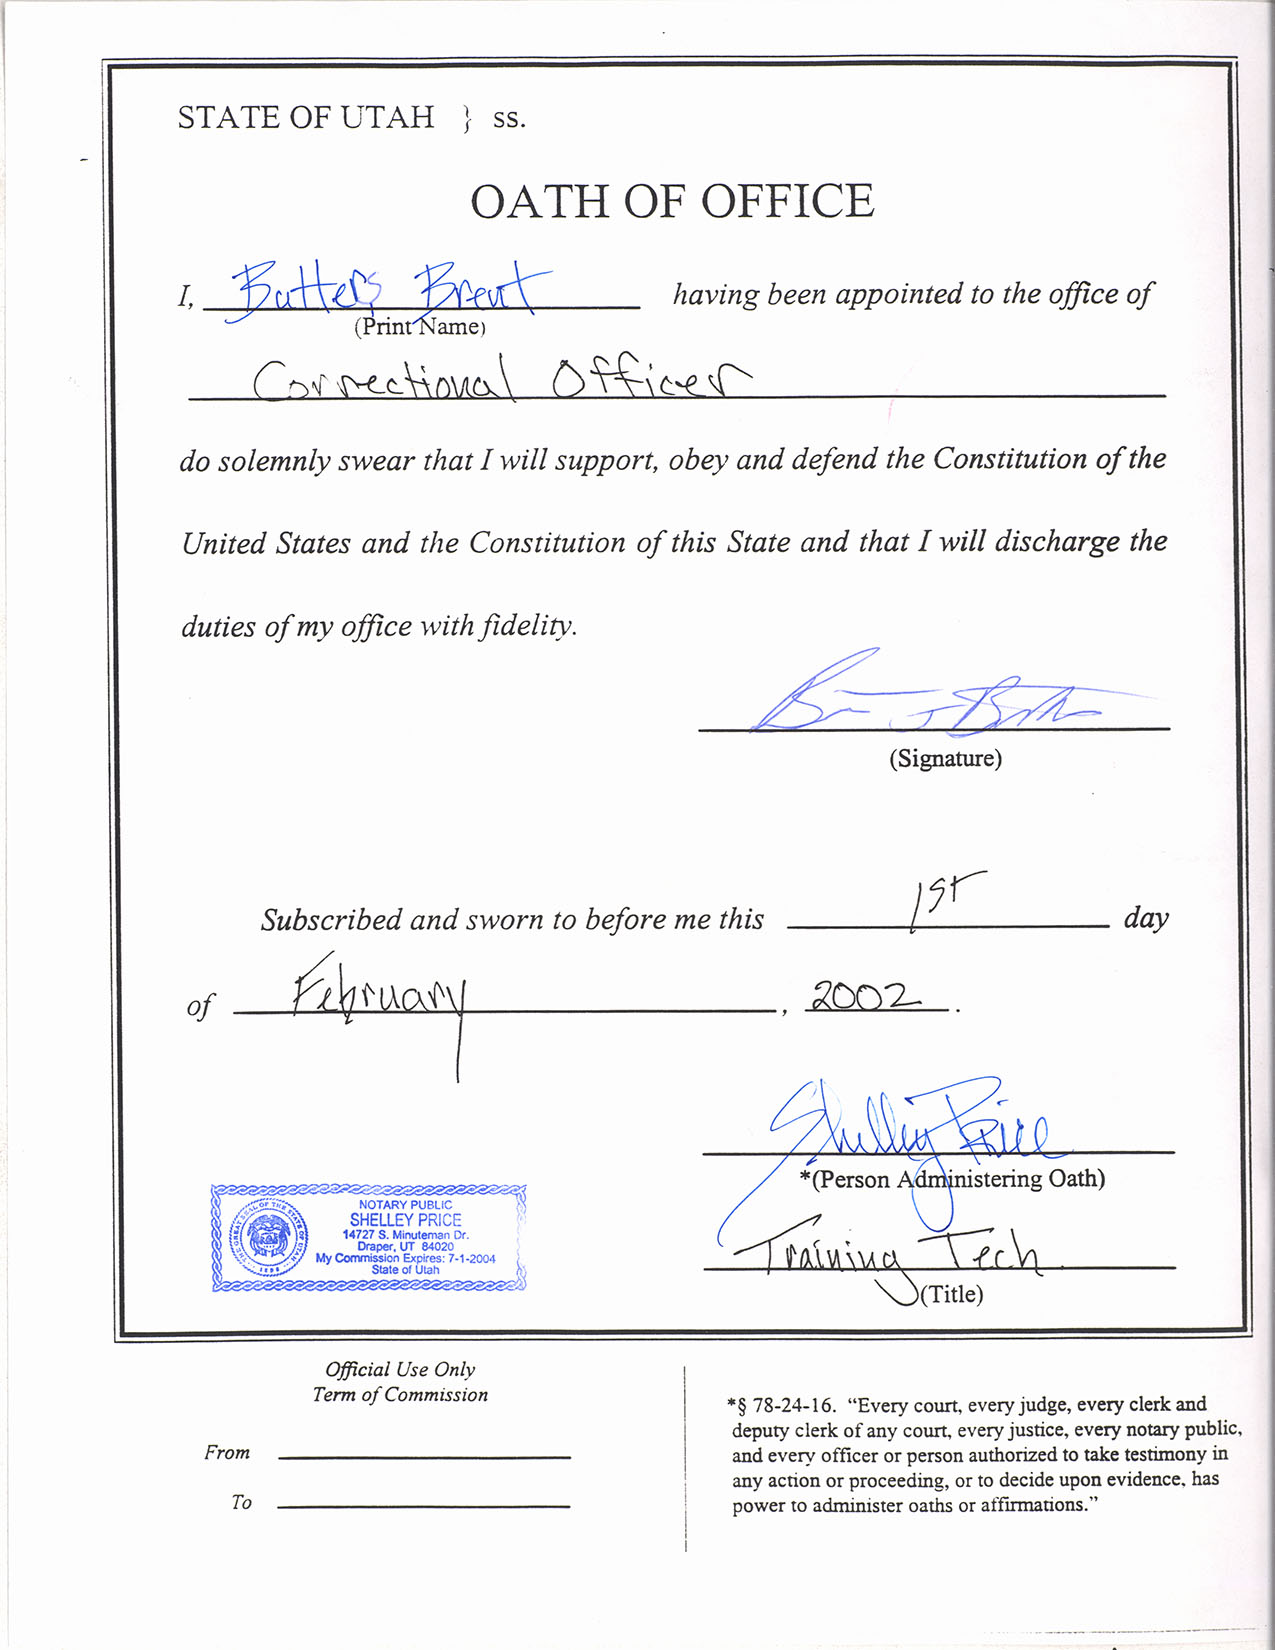 STATE OF UTAH } ss.
OATH OF OFFICE
I, Butters Brent having been appointed to the office of
(Print Name)
Correctional Officer
do solemnly swear that I will support, obey and defend the Constitution of the
United States and the Constitution of this State and that I will discharge the
duties of my office with fidelity.
(Signature)
Subscribed and sworn to before me this 1st day
of February, 2002.
Shelley Price
*(Person Administering Oath)
Training Tech
(Title)
THE GREAT SEAL OF THE STATE OF UTAH
1896
NOTARY PUBLIC
SHELLEY PRICE
14727 S. Minuteman Dr.
Draper, UT 84020
My Commission Expires: 7-1-2004
State of Utah
Official Use Only
Term of Commission
From
To
*§ 78-24-16. “Every court, every judge, every clerk and
deputy clerk of any court, every justice, every notary public,
and every officer or person authorized to take testimony in
any action or proceeding, or to decide upon evidence, has
power to administer oaths or affirmations.”